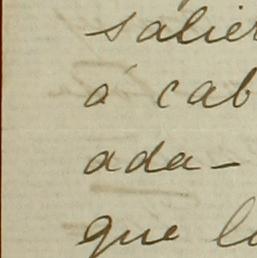 salier
á cab
ada-
que lo